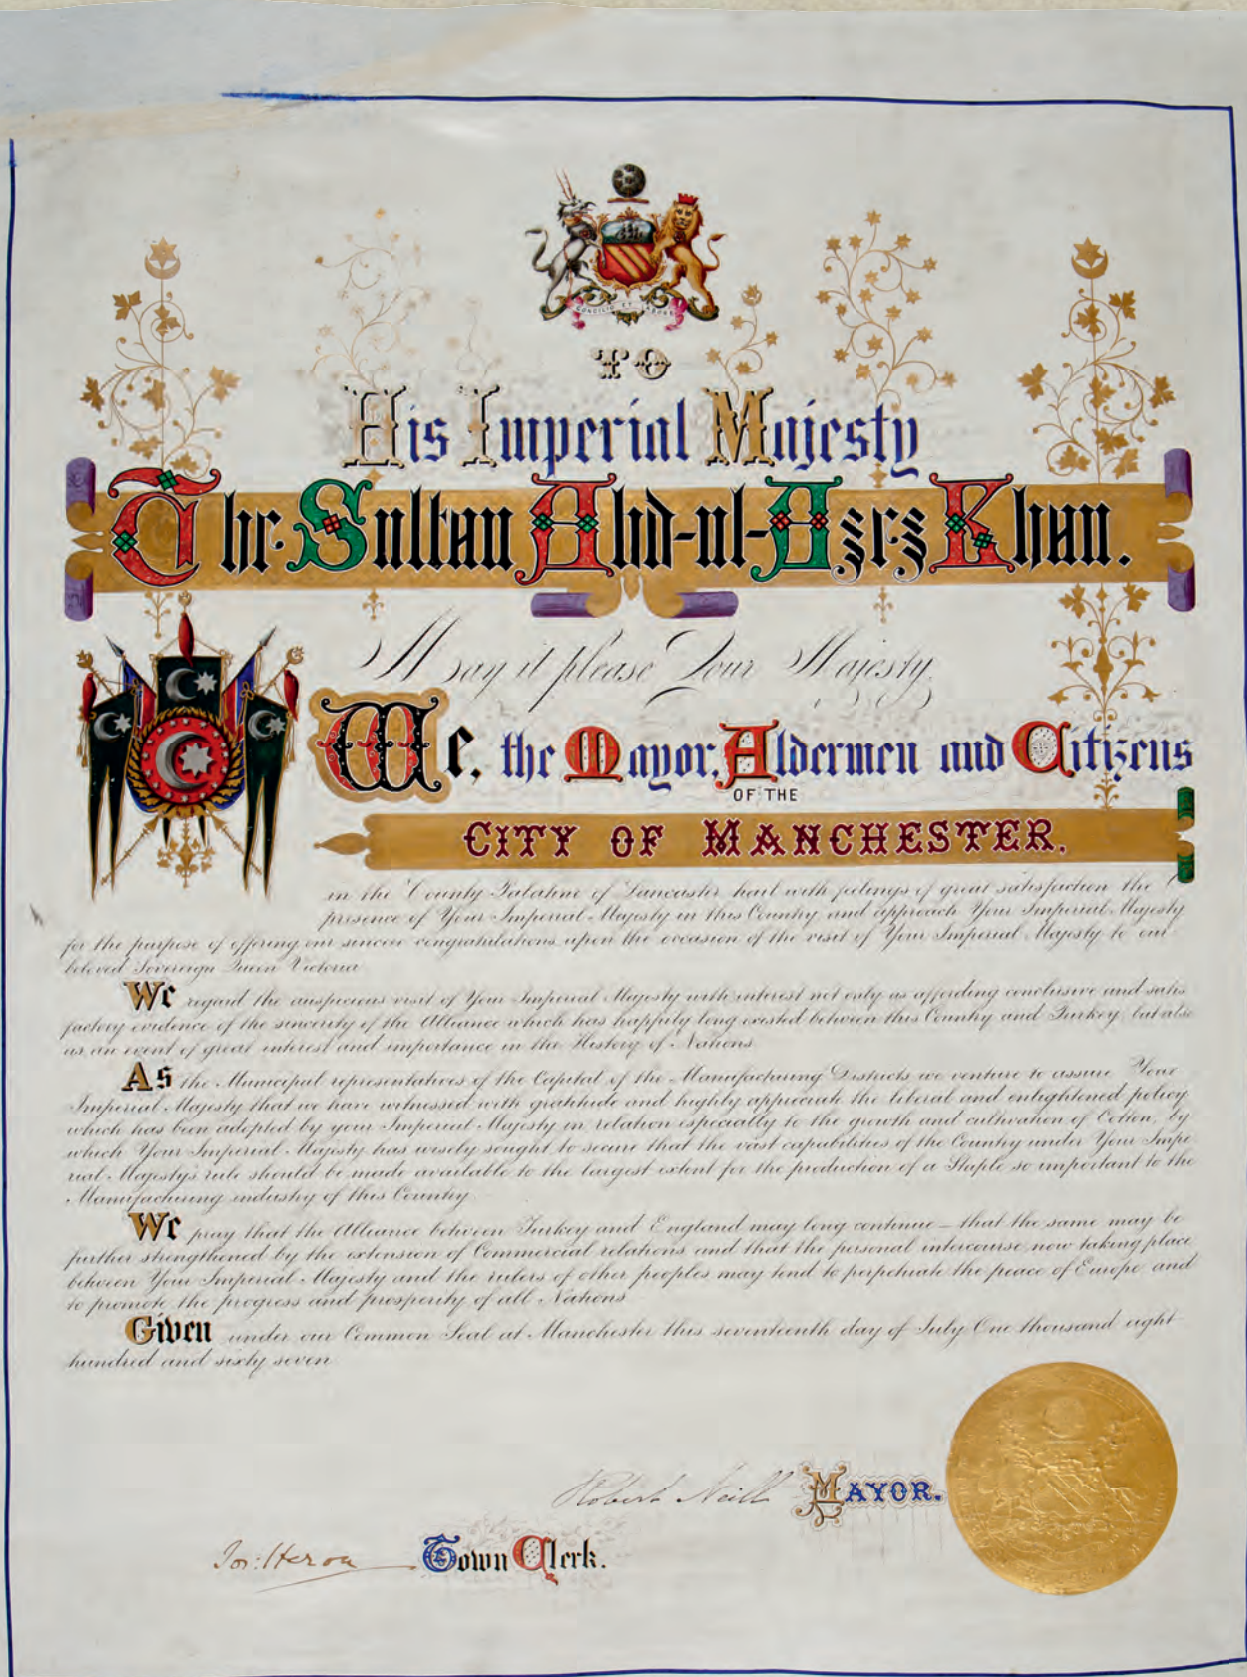 CONCILIO ET LABORE
TO
His Imperial Majesty
The Sultan Abd-ul-Azez Khan.
May it please Your Majesty.
We, the Mayor, Aldermen and Citizens
OF THE
CITY OF MANCHESTER.
in the County Palatine of Lancaster hail with feelings of great satisfaction the
presence of Your Imperial Majesty in this Country, and approach Your Imperial Majesty
for the purpose of offering our sincere congratulations upon the occasion of the visit of Your Imperial Majesty to our
beloved Sovereign Queen Victoria
We regard the auspicious visit of Your Imperial Majesty with interest not only as affording conclusive and satis
factory evidence of the sincerity of the Alliance which has happily long existed between this Country and Turkey, but also
as an event of great interest and importance in the History of Nations
As the Municipal representatives of the Capital of the Manufacturing Districts we venture to assure Your
Imperial Majesty that we have witnessed with gratitude and highly appreciate the liberal and enlightened policy
which has been adopted by your Imperial Majesty in relation especially to the growth and cultivation of Cotton, by
which Your Imperial Majesty has wisely sought to secure that the vast capabilities of the Country under Your Impe
rial Majesty's rule should be made available to the largest extent for the production of a Staple so important to the
Manufacturing industry of this Country
We pray that the Alliance between Turkey and England may long continue – that the same may be
further strengthened by the extension of Commercial relations and that the personal intercourse now taking place
between Your Imperial Majesty and the rulers of other peoples may tend to perpetuate the peace of Europe and
to promote the progress and prosperity of all Nations
Given under our Common Seal at Manchester this seventeenth day of July One thousand eight
hundred and sixty seven
Robert Neill MAYOR.
Jos: Heron Town Clerk.